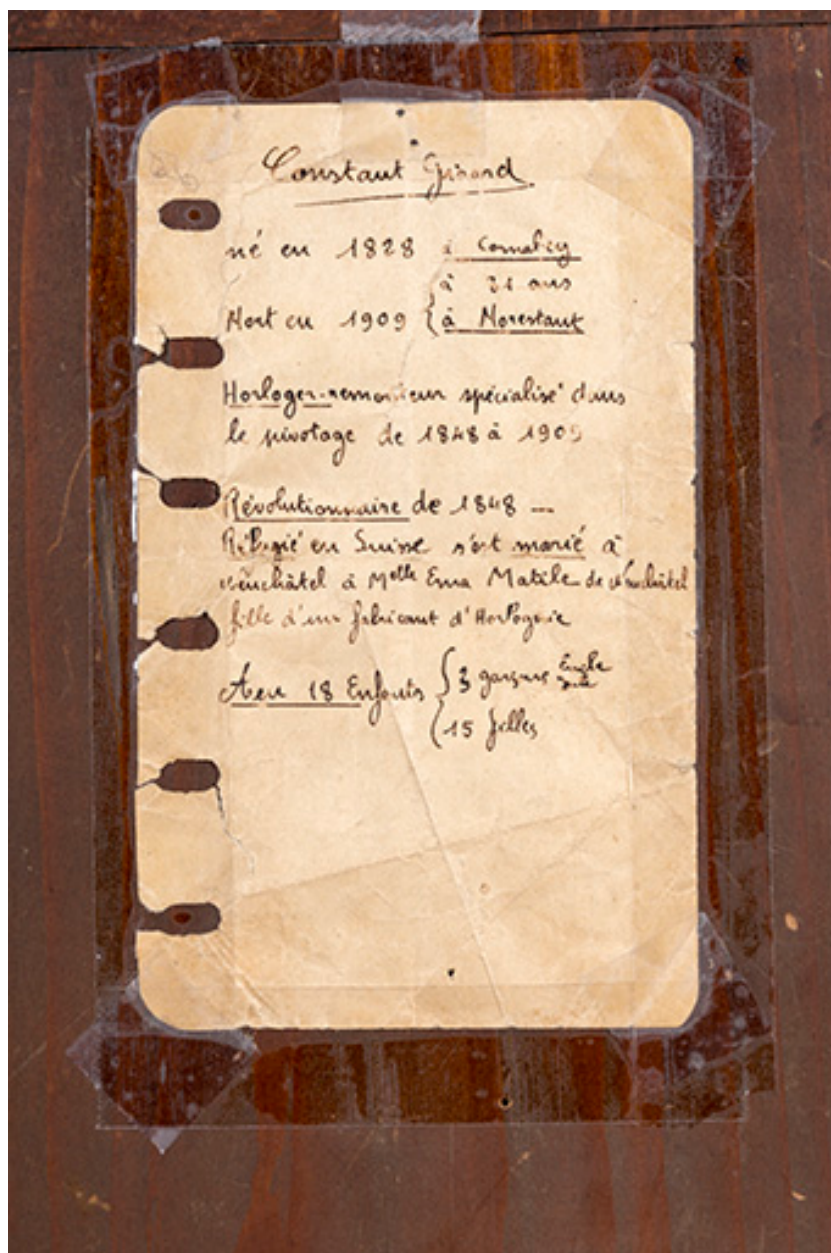 Constant Girard
né en 1828 à
à ans
Mort en 1909 { à Morestaut
Horloger-remonteur spécialisé dans
le pivotage de 1848 à 1909
Révolutionnaire de 1848 —
Réfugié en Suisse s'est marié à
Neuchâtel à Melle Ema Matile de Neuchâtel
fille d'un fabricant d'Horlogerie
A eu 18 Enfants { 3 garçons
15 filles